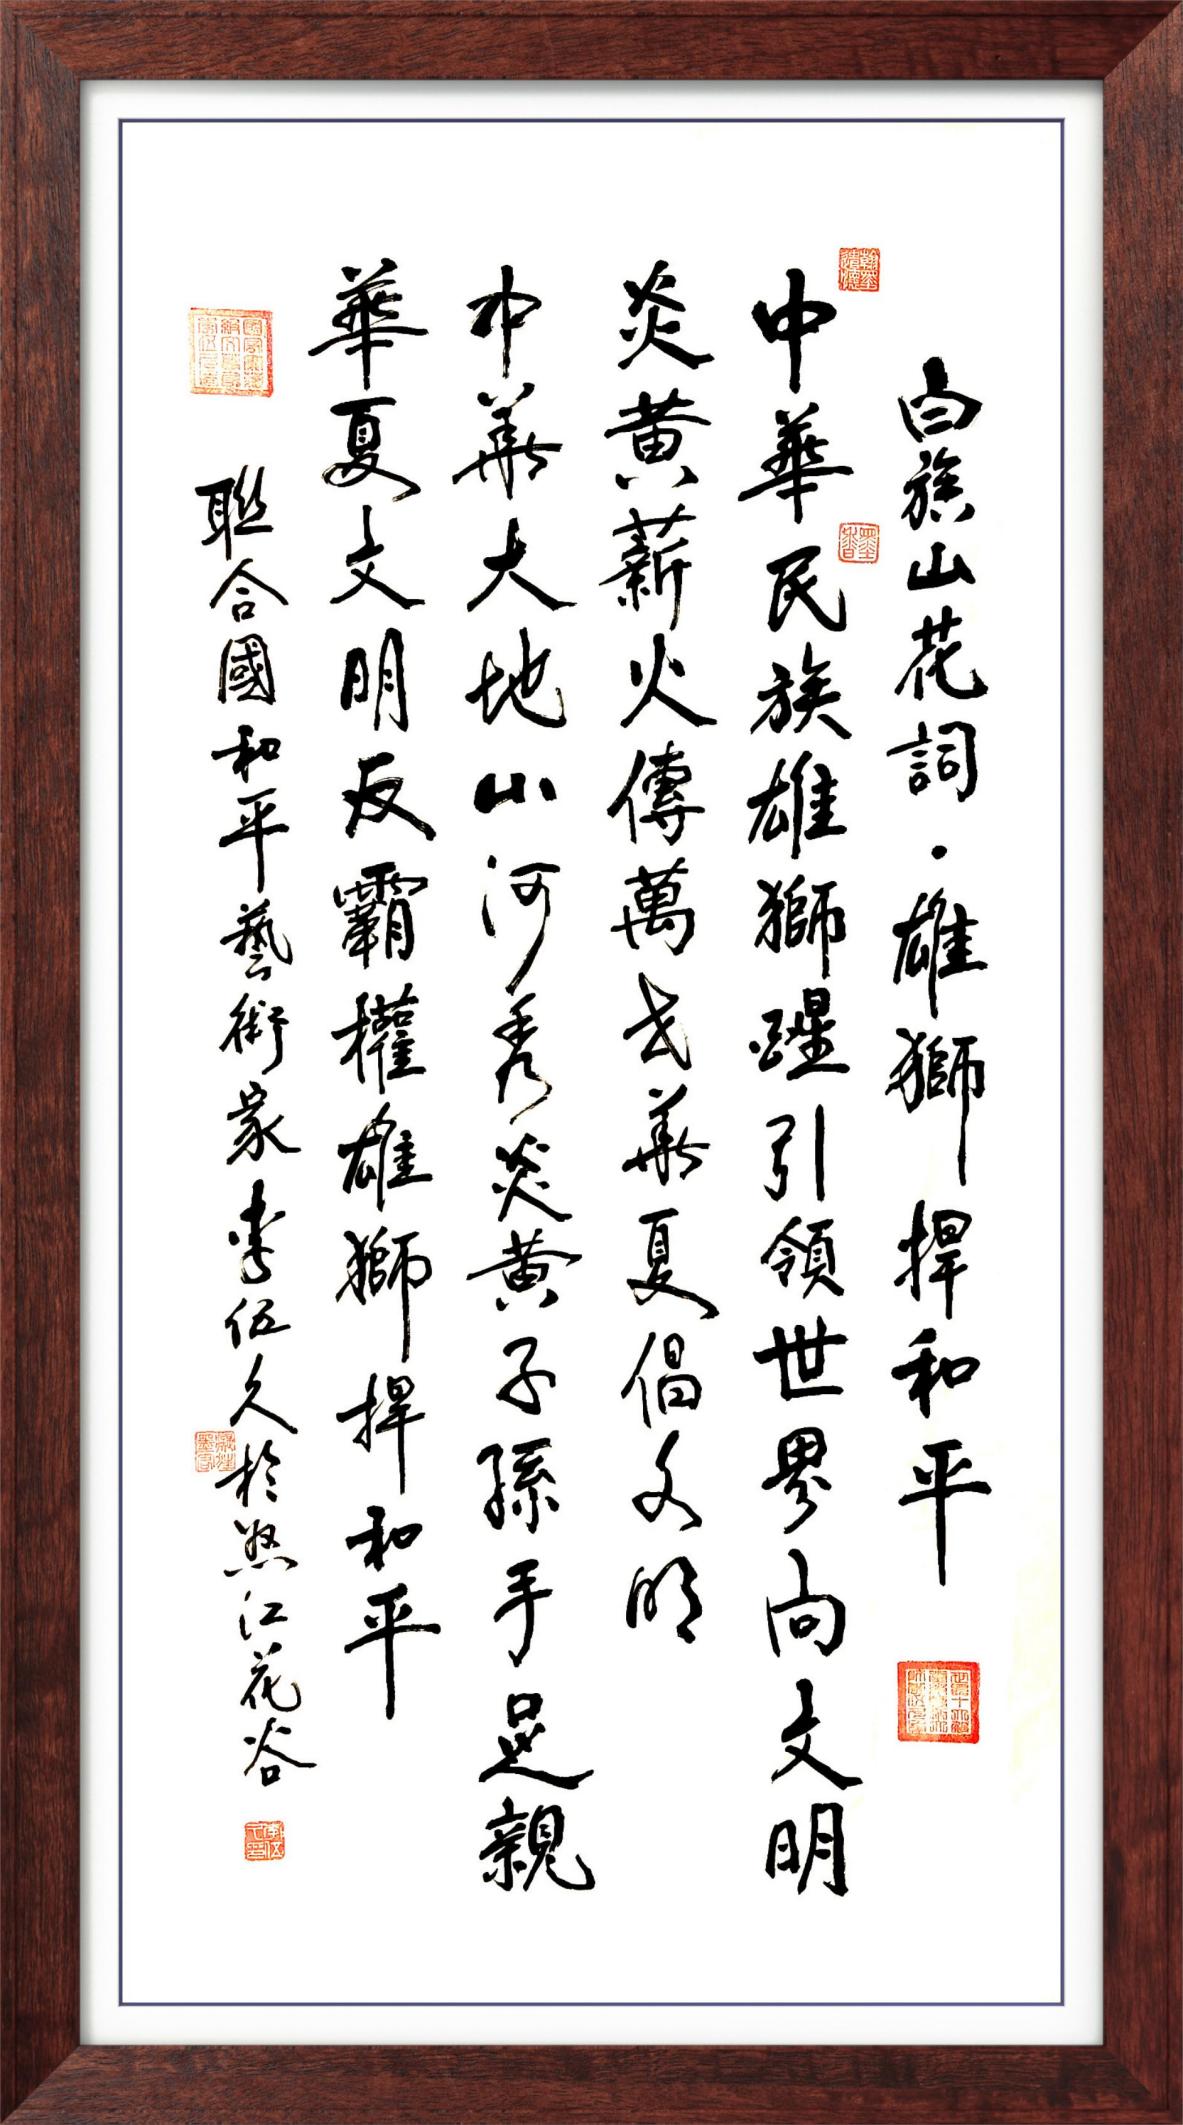 白族山花詞·雄獅捍和平
中華民族雄獅醒引領世界尚文明
炎黄薪火傳萬代華夏倡文明
中華大地山河秀炎黄子孫手足親
華夏文明反霸權雄獅捍和平
聯合國和平藝術家李伍久於怒江花谷